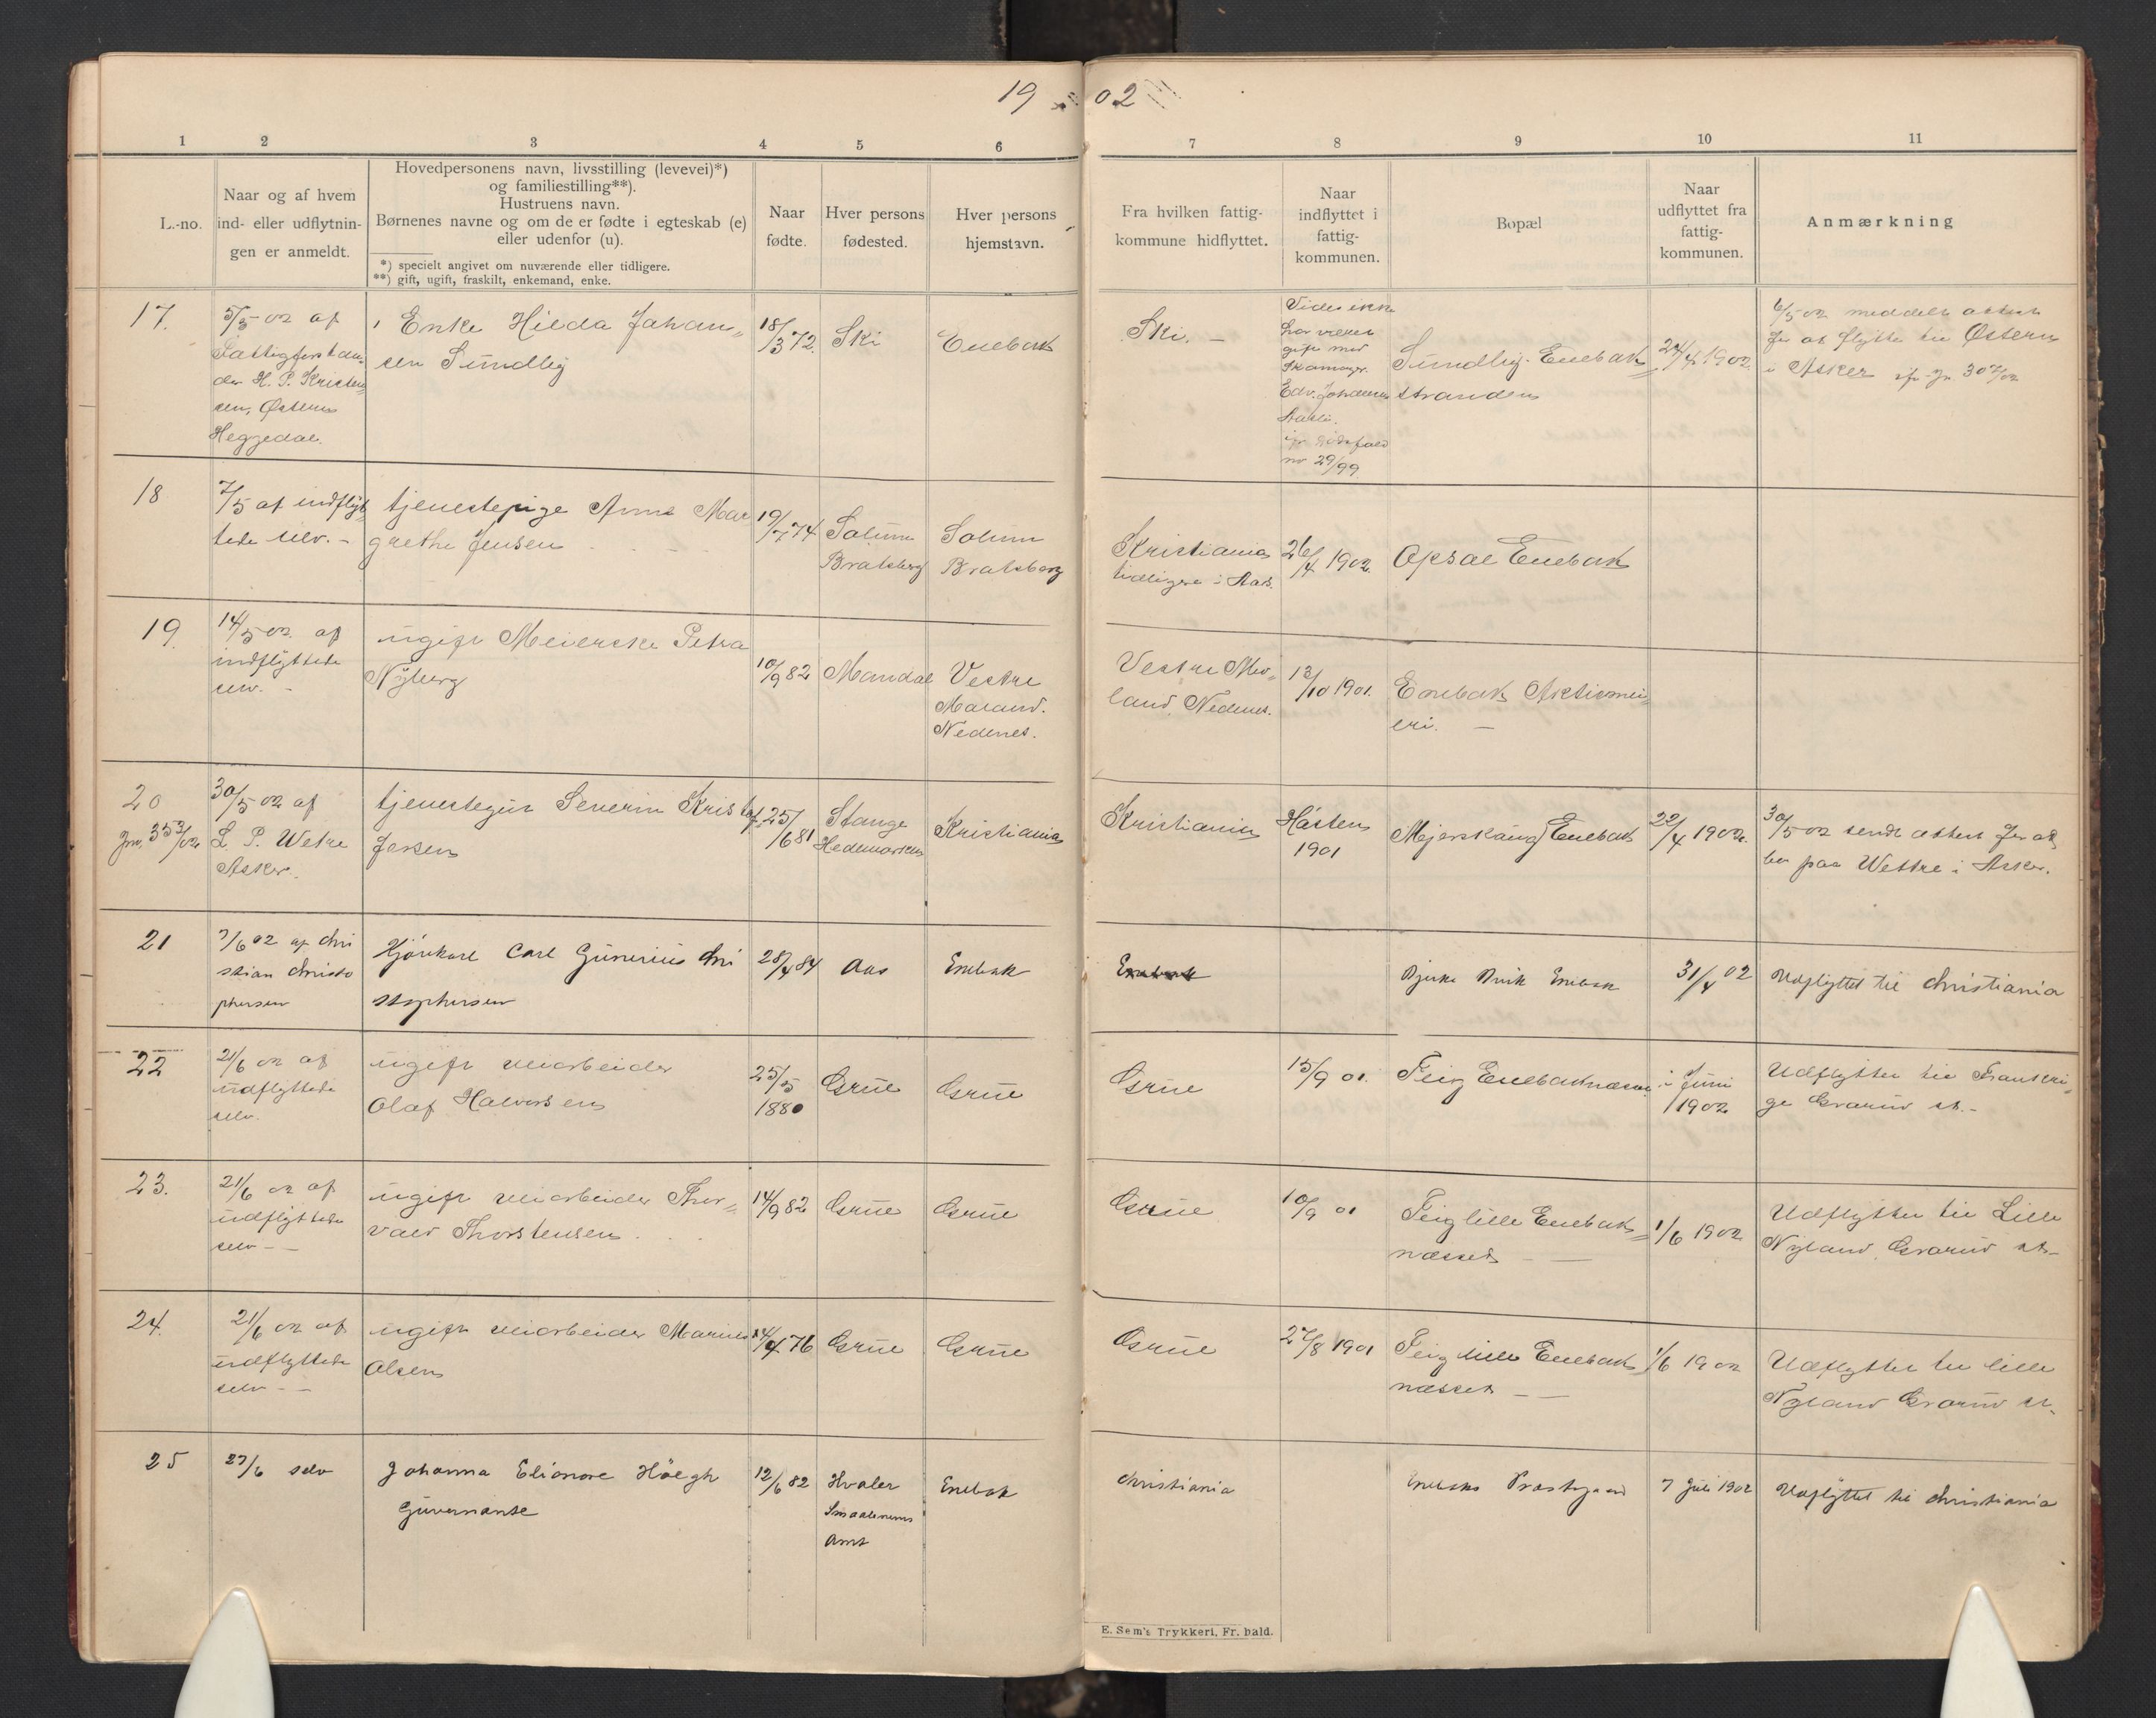 19 02
1 2 3 4 5 6 7 8 9 10 11
L.-no.
Naar og af hvem
ind- eller udflytnin-
gen er anmeldt.
Hovedpersonens navn, livsstilling (levevei)*)
og familiestilling**).
Hustruens navn.
Børnenes navne og om de er fødte i egteskab (e)
eller udenfor (u).
*) specielt angivet om nuværende eller tidligere.
**) gift, ugift, fraskilt, enkemand, enke.
Naar
fødte.
Hver persons
fødested.
Hver persons
hjemstavn.
Fra hvilken fattig-
kommune hidflyttet.
Naar
indflyttet i
fattig-
kommunen.
Bopæl
Naar
udflyttet fra
fattig-
kommunen.
Anmærkning
17.
5/5 02 af
Fattigforstan-
der H. P. Kristen
sen, Østern
Heggedal.
Enke Hilda Johan-
sen Sundlig
18/3 72.
Ski
Enebak
Ski. -
Vides ikke
har været
gift med
Skomagr.
Edv. Johansen
nr 29/99
Sundlig Enebak
stranden
24/4 1902.
6/5 02 meddelt attest
for at flytte til Østern
i Asker
18
7/5 af indflyt
tede selv. -
tjenestepige Anne Mar
grethe Jensen
19/7 74
Solum
Bratsberg
Solum
Bratsberg
Kristiania
tidligere i Aas.
26/4 1902.
Opsal Enebak
19.
14/5 02. af
indflyttede
selv. -
ugift Meierske Petra
Nyberg
10/9 82
Mandal
Vestre
Moland.
Nedenes.
Vestre Mo-
land, Nedenes.
12/10 1901.
Enebak Aktiemei-
eri. -
20
Jnr. 353/02
30/5 02 af
L. P. Wetre
Asker.
tjenestegut Severin Kristof
fersen
25/6 81
Stange
Hedemarken
Kristiania
Kristiania
Høsten
1901
Mejerskaug Enebak
22/4 1902.
30/5 02 sendt attest for at
bo paa Wettre i Asker.
21
7/6 02 af Chri
stian Christo
phersen
Kjørekarl Carl Gunerius Chri
stophersen
28/4 84
Aas
Enebak
Enebak
Bjerke Bruk Enebak
31/4 02
Udflyttet til Christiania
22
21/6 02 af
udflyttede
selv.
ugift veiarbeider
Olaf Halvorsen
25/5
1880
Grue
Grue
Grue
15/9 01.
Feig Enebaknæsset
i Juni
1902
Udflyttet til Franskri-
ge Gvarud st. -
23.
21/6 02 af
udflyttede
selv - -
ugift veiarbeider Thor-
vald Thorstensen
14/9 82
Grue
Grue
Grue
10/9 01
Feig lille Enebak-
næsset - -
1/6 1902
Udflyttet til Lille
Nyland, Gvarud st -
24.
21/6 02 af
udflyttede
selv - -
ugift veiarbeider Marius
Olsen
14/9 76
Grue
Grue
Grue
27/8 1901
Feig lille Enebak
næsset - -
1/6 1902
Udflyttet til lille
Nyland Gvarud st.
25
27/6 selv
Johanna Elionore Höegh
Guvernante
12/6 82
Hvaler
Smaalenenes
Amt
Enebak
Christiania
Enebaks Præstegaard
7 Juli 1902
Udflyttet til Christiania
E. Sem's Trykkeri, Fr. hald.